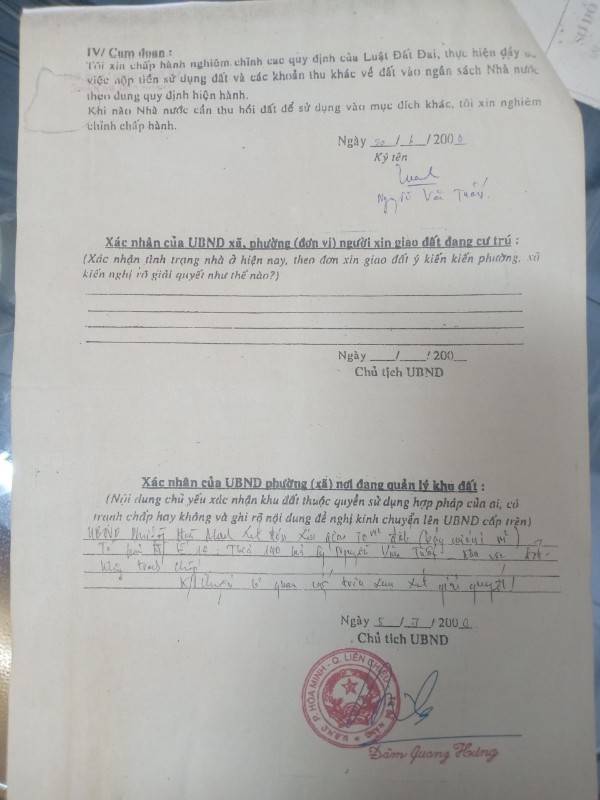 IV/ Cam đoan :
Tôi xin chấp hành nghiêm chỉnh các quy định của Luật Đất Đai, thực hiện đầy
việc nộp tiền sử dụng đất và các khoản thu khác về đất vào ngân sách Nhà nước
theo đúng quy định hiện hành.
Khi nào Nhà nước cần thu hồi đất để sử dụng vào mục đích khác, tôi xin nghiêm
chỉnh chấp hành.
Ngày 20/6/2000
Ký tên
Nguyễn Văn Tuấn
Xác nhận của UBND xã, phường (đơn vị) người xin giao đất đang cư trú :
(Xác nhận tình trạng nhà ở hiện nay, theo đơn xin giao đất ý kiến kiến phường, xã
kiến nghị rõ giải quyết như thế nào?)
Ngày ___/___/200__
Chủ tịch UBND
Xác nhận của UBND phường (xã) nơi đang quản lý khu đất :
(Nội dung chủ yếu xác nhận khu đất thuộc quyền sử dụng hợp pháp của ai, có
tranh chấp hay không và ghi rõ nội dung đề nghị kính chuyển lên UBND cấp trên)
UBND Phường Hoà Minh xin giao 70 m² đất
Nguyễn Văn
tranh chấp
quan trên xem xét giải quyết
Ngày 5/7/2000
Chủ tịch UBND
U.B.N.D P. HÒA MINH - Q. LIÊN CHIỂU
Đàm Quang Hưng